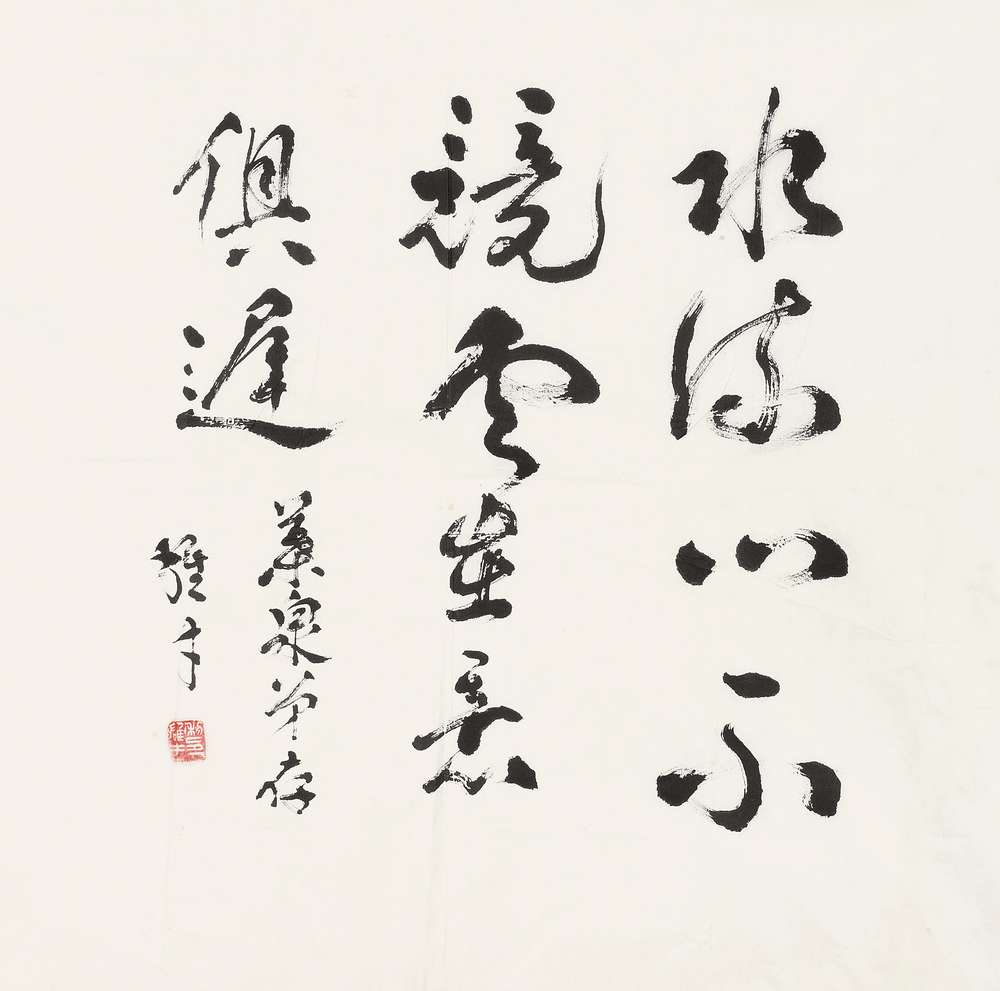 水流心不
競雲在意
俱遲
泉弟存
雄才